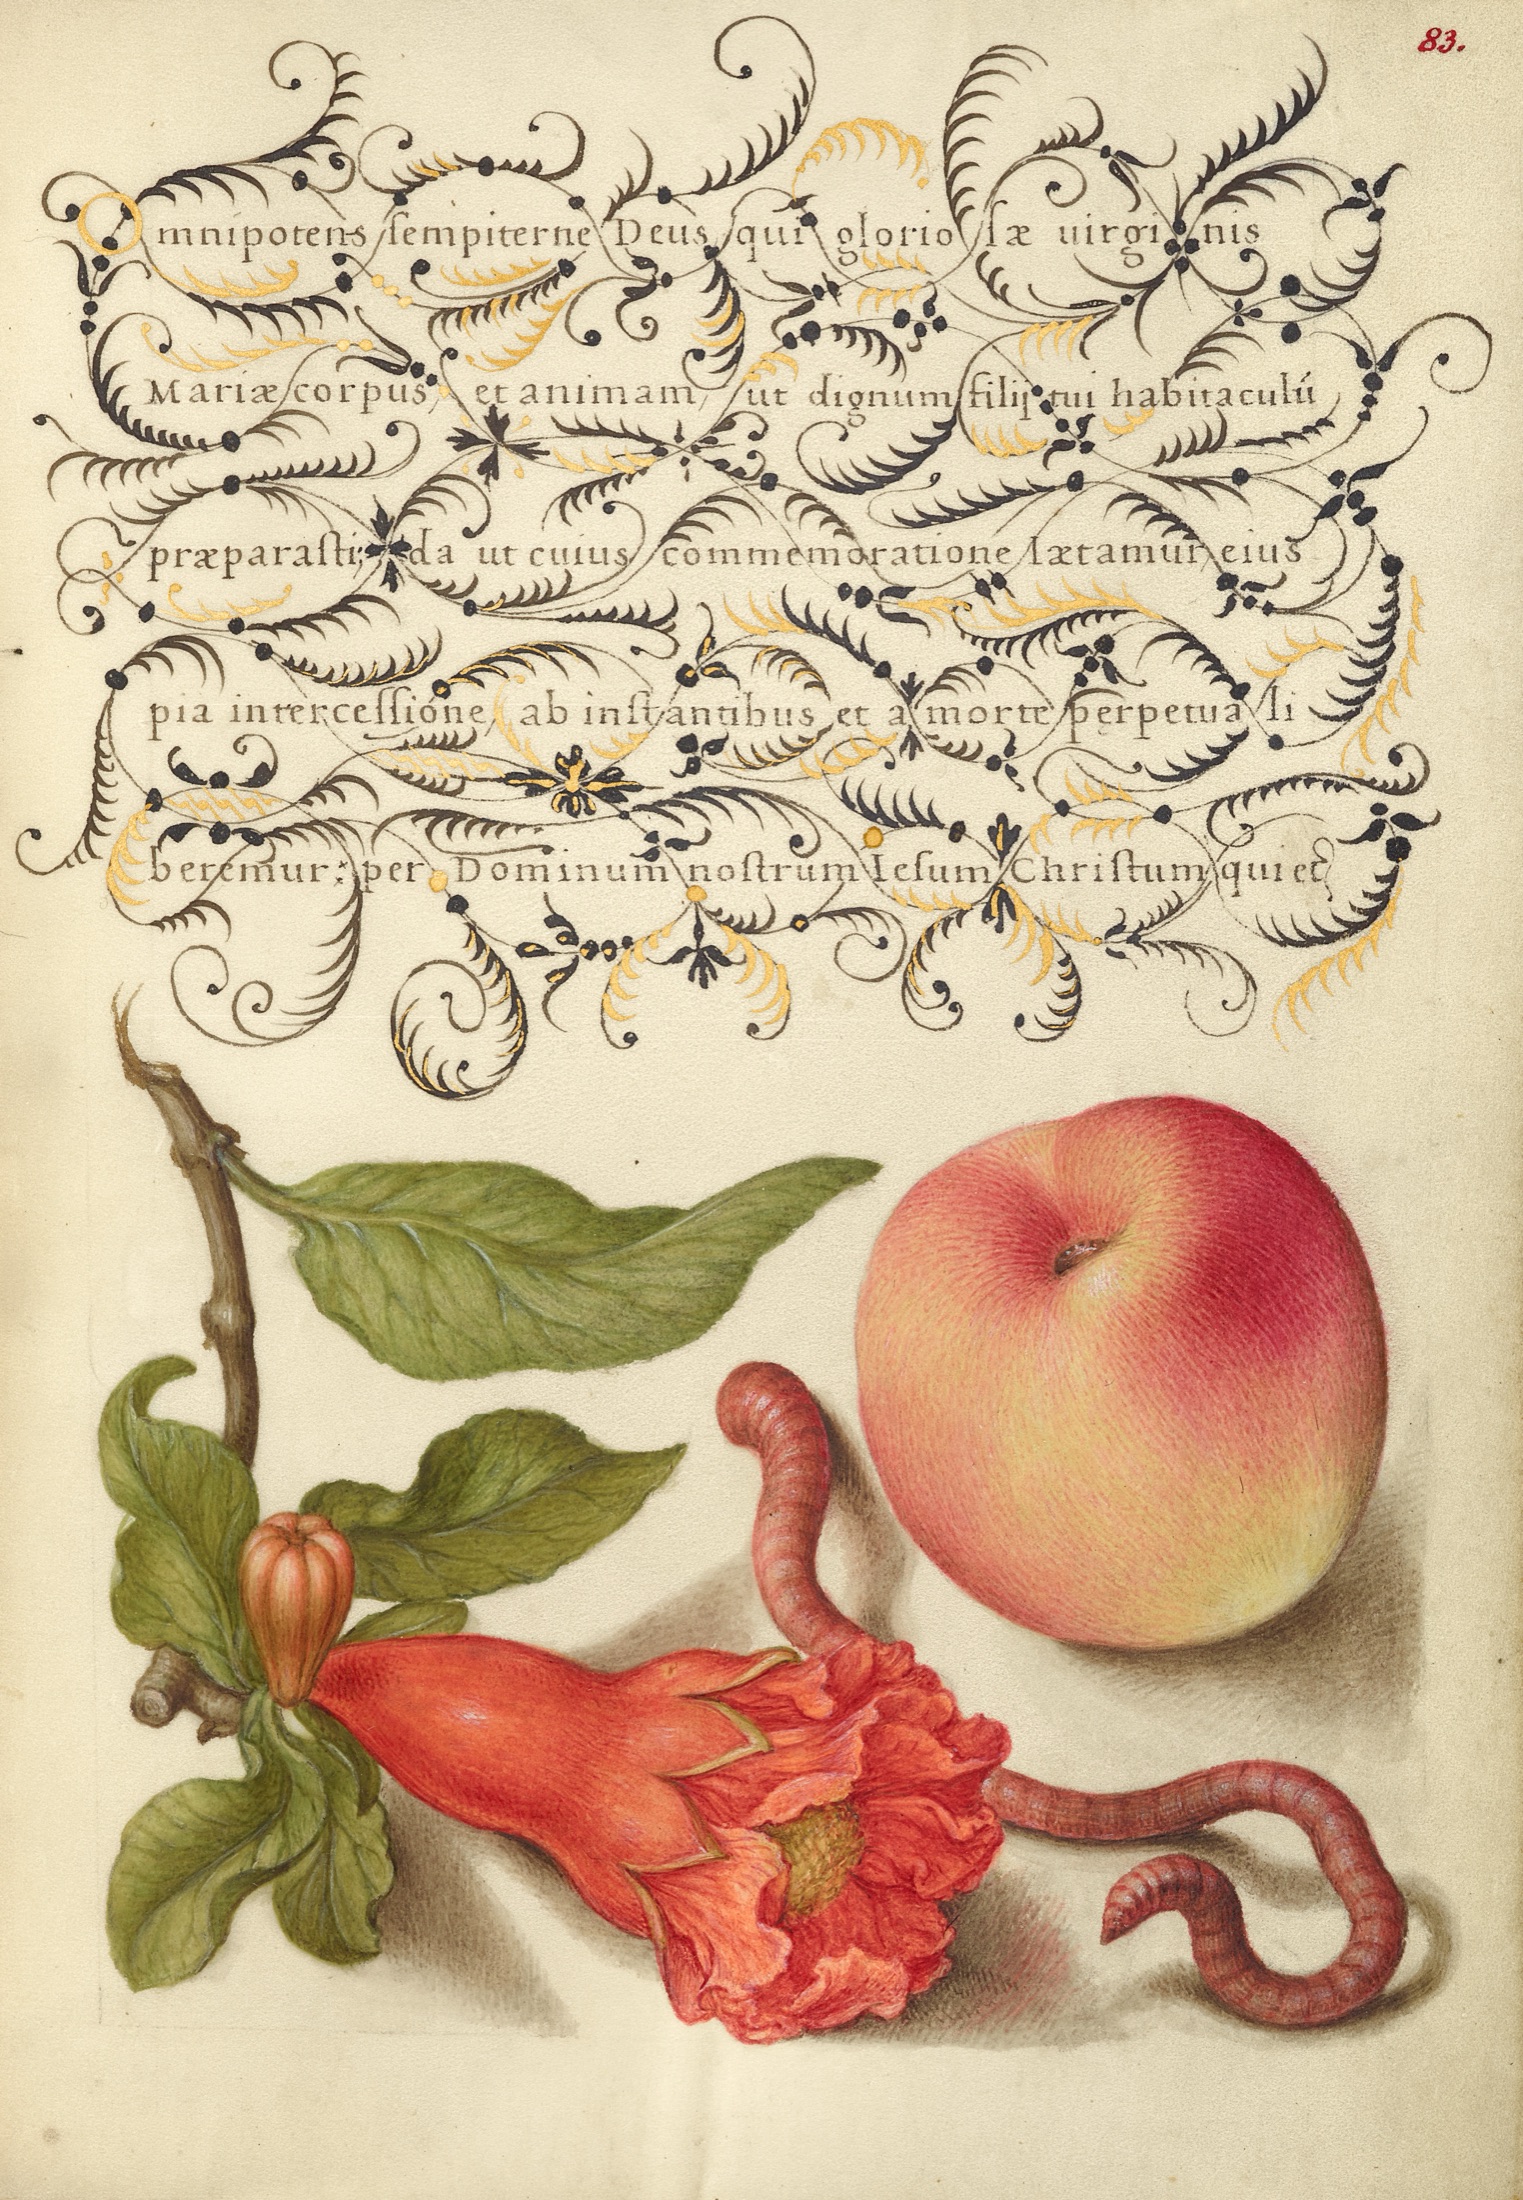 83.
Omnipotens sempiterne Deus qui glorio sæ uirginis
Mariæ corpus, et animam, ut dignum filij tui habitaculū
præparasti; da ut cuius commemoratione lætamur, eius
pia intercessione, ab instantibus et a morte perpetua li
beremur: per Dominum nostrum Iesum Christum qui etc